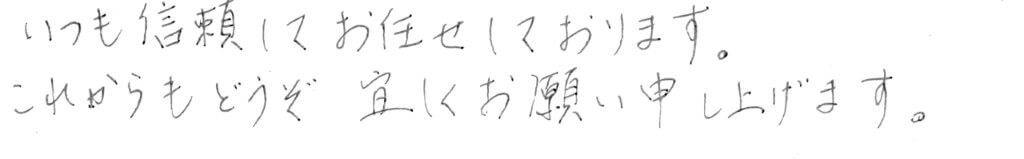 いつも信頼してお任せしております。
これからもどうぞ宜しくお願い申し上げます。